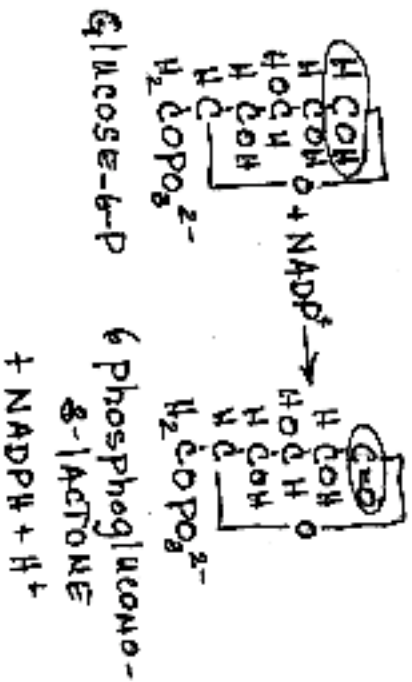 H COH
H COH
HOCH
H COH
H C
H₂COPO₃²⁻
O
+ NADP⁺ →
GLUCOSE-6-P
C=O
H COH
HOCH
H COH
H C
H₂COPO₃²⁻
O
6 phosphoglucono-
δ-lACTONE
+ NADPH + H⁺